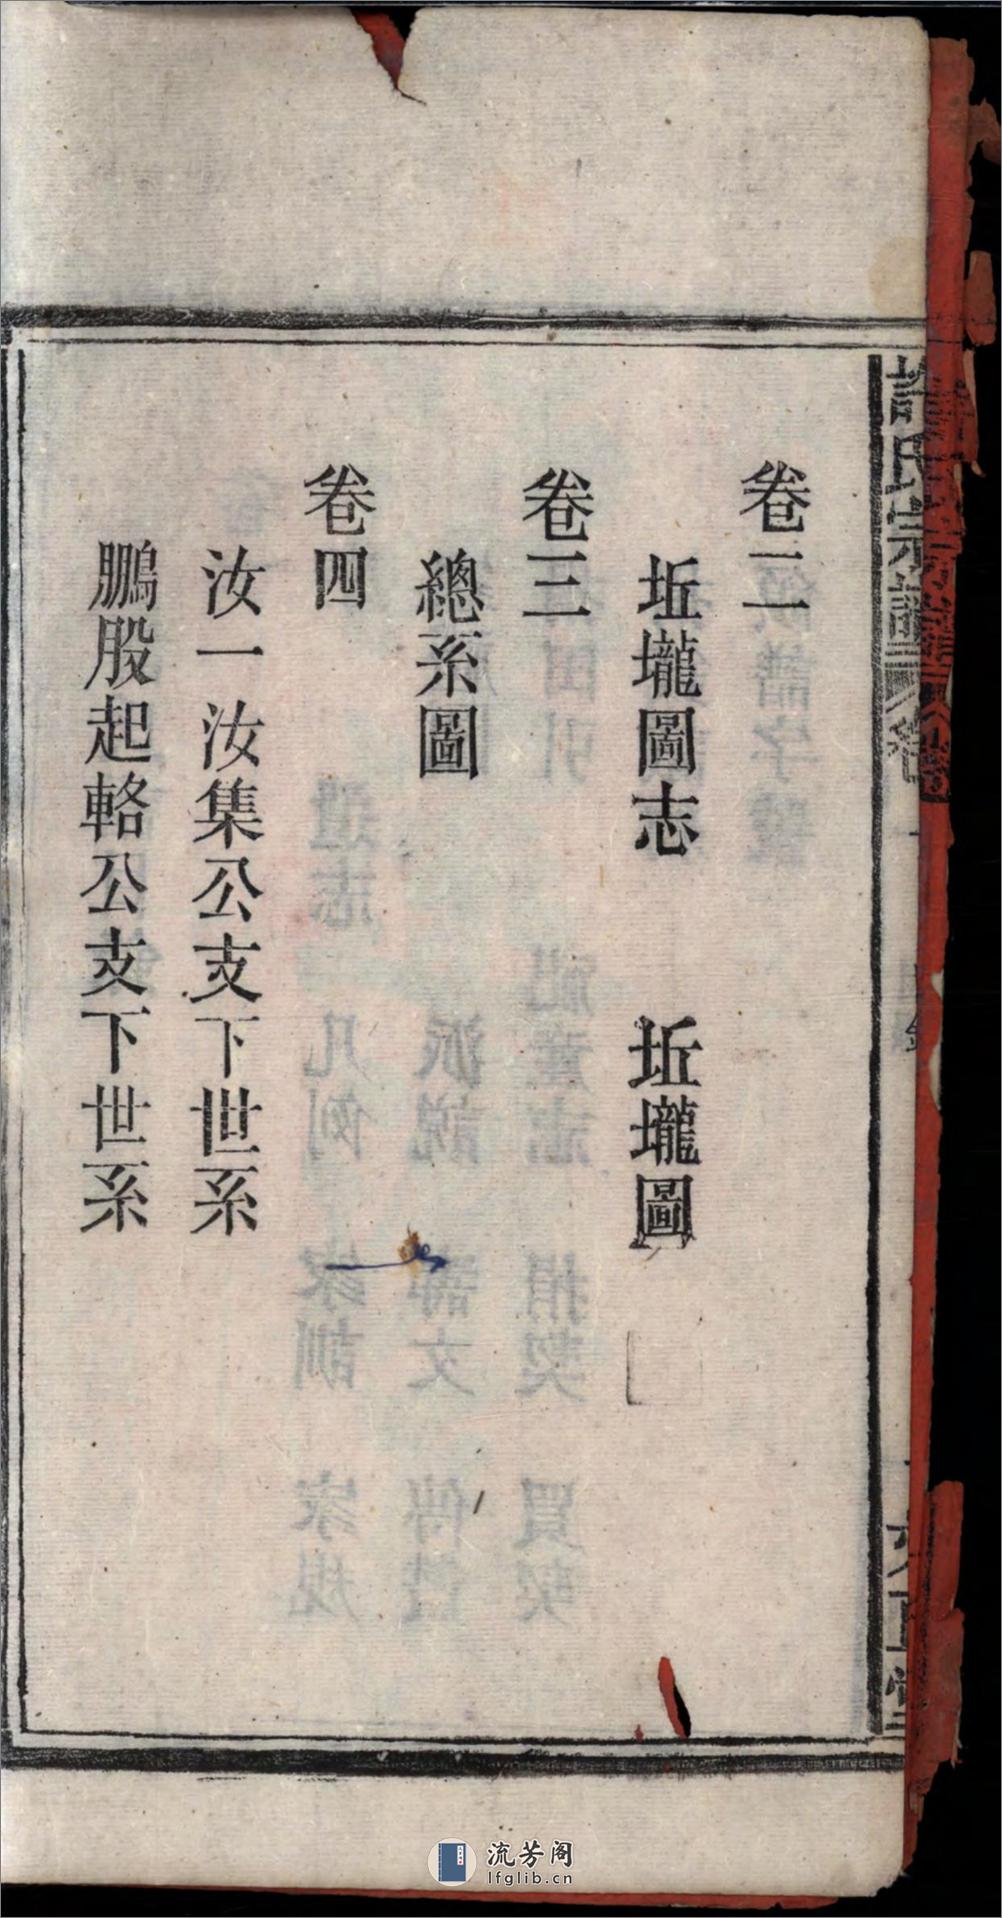 許氏宗譜
卷二
坵壠圖志 坵壠圖
卷三
總系圖
卷四
汝一汝集公支下世系
鵬股起輅公支下世系
流芳阁
lfglib.cn